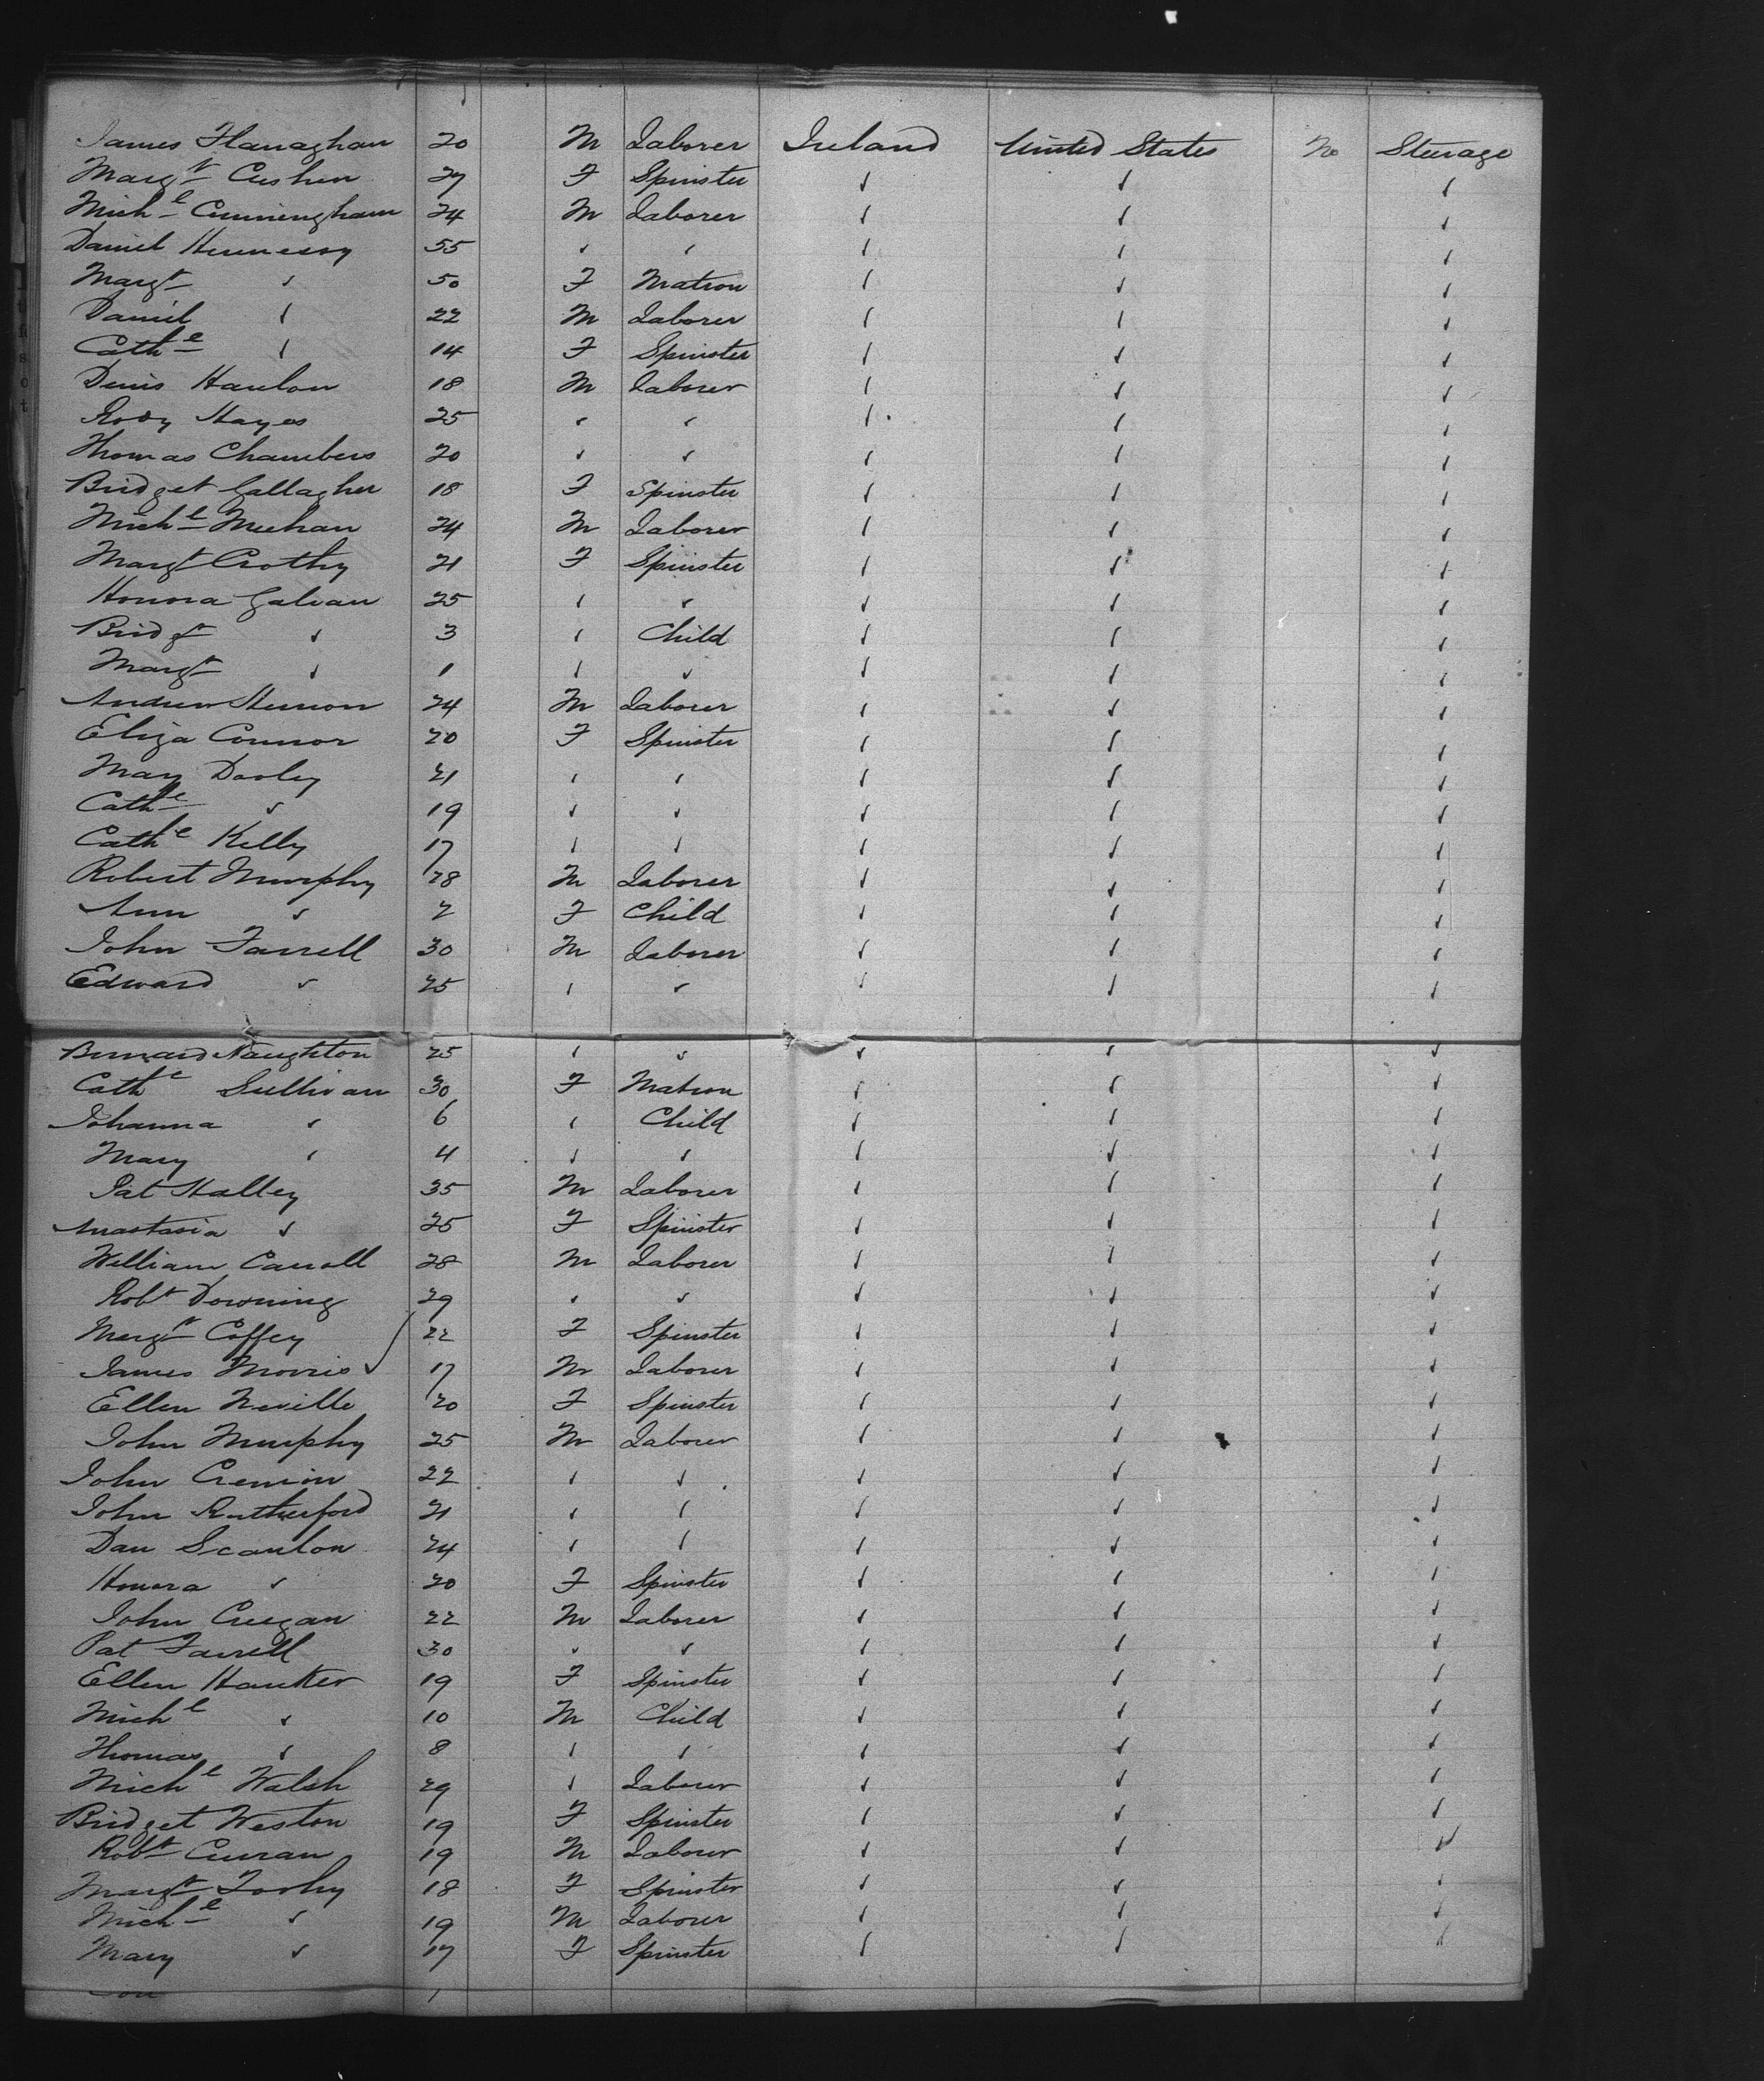 James Flanaghan 20 M Laborer Ireland United States No Steerage
Margt Cushen 27 F Spinster ✓ ✓ ✓
Michl Cunningham 24 M Laborer ✓ ✓ ✓
Daniel Hennessy 55 ✓ ✓ ✓ ✓ ✓
Margt ✓ 50 F Matron ✓ ✓ ✓
Daniel ✓ 22 M Laborer ✓ ✓ ✓
Cathe ✓ 14 F Spinster ✓ ✓ ✓
Denis Hanlon 18 M Laborer ✓ ✓ ✓
Rody Hayes 25 ✓ ✓ ✓ ✓ ✓
Thomas Chambers 20 ✓ ✓ ✓ ✓ ✓
Bridget Gallagher 18 F Spinster ✓ ✓ ✓
Michl Meehan 24 M Laborer ✓ ✓ ✓
Margt Crothy 21 F Spinster ✓ ✓ ✓
Honora Galvan 25 ✓ ✓ ✓ ✓ ✓
Bridgt ✓ 3 ✓ Child ✓ ✓ ✓
Margt ✓ 1 ✓ ✓ ✓ ✓ ✓
Andrew 24 M Laborer ✓ ✓ ✓
Eliza Connor 20 F Spinster ✓ ✓ ✓
Mary Dooley 21 ✓ ✓ ✓ ✓ ✓
Cathe ✓ 19 ✓ ✓ ✓ ✓ ✓
Cathe Kelly 17 ✓ ✓ ✓ ✓ ✓
Robert Murphy 28 M Laborer ✓ ✓ ✓
Ann ✓ 2 F Child ✓ ✓ ✓
John Farrell 30 M Laborer ✓ ✓ ✓
Edward ✓ 25 ✓ ✓ ✓ ✓ ✓
Bernard Naughton 25 ✓ ✓ ✓ ✓ ✓
Cathe Sullivan 30 F Matron ✓ ✓ ✓
Johanna ✓ 6 ✓ Child ✓ ✓ ✓
Mary ✓ 4 ✓ ✓ ✓ ✓ ✓
Pat Halley 35 M Laborer ✓ ✓ ✓
Anastasia ✓ 25 F Spinster ✓ ✓ ✓
William Carroll 28 M Laborer ✓ ✓ ✓
Robt Downing 29 ✓ ✓ ✓ ✓ ✓
Margt Coffey 22 F Spinster ✓ ✓ ✓
James Morris ✓ 17 M Laborer ✓ ✓ ✓
Ellen Neville 20 F Spinster ✓ ✓ ✓
John Murphy 25 M Laborer ✓ ✓ ✓
John Cremin 22 ✓ ✓ ✓ ✓ ✓
John Rutherford 21 ✓ ✓ ✓ ✓ ✓
Dan Scanlon 24 ✓ ✓ ✓ ✓ ✓
Honora ✓ 20 F Spinster ✓ ✓ ✓
John Creegan 22 M Laborer ✓ ✓ ✓
Pat Farrell 30 ✓ ✓ ✓ ✓ ✓
Ellen 19 F Spinster ✓ ✓ ✓
Michl ✓ 10 M Child ✓ ✓ ✓
Thomas ✓ 8 ✓ ✓ ✓ ✓ ✓
Michl Walsh 29 ✓ Laborer ✓ ✓ ✓
Bridget Weston 19 F Spinster ✓ ✓ ✓
Robt Curran 19 M Laborer ✓ ✓ ✓
Margt Toohy 18 F Spinster ✓ ✓ ✓
Michl ✓ 19 M Laborer ✓ ✓ ✓
Mary ✓ 17 F Spinster ✓ ✓ ✓